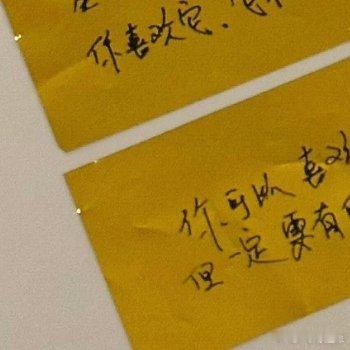 你喜欢它.
你可以喜欢
但一定要有